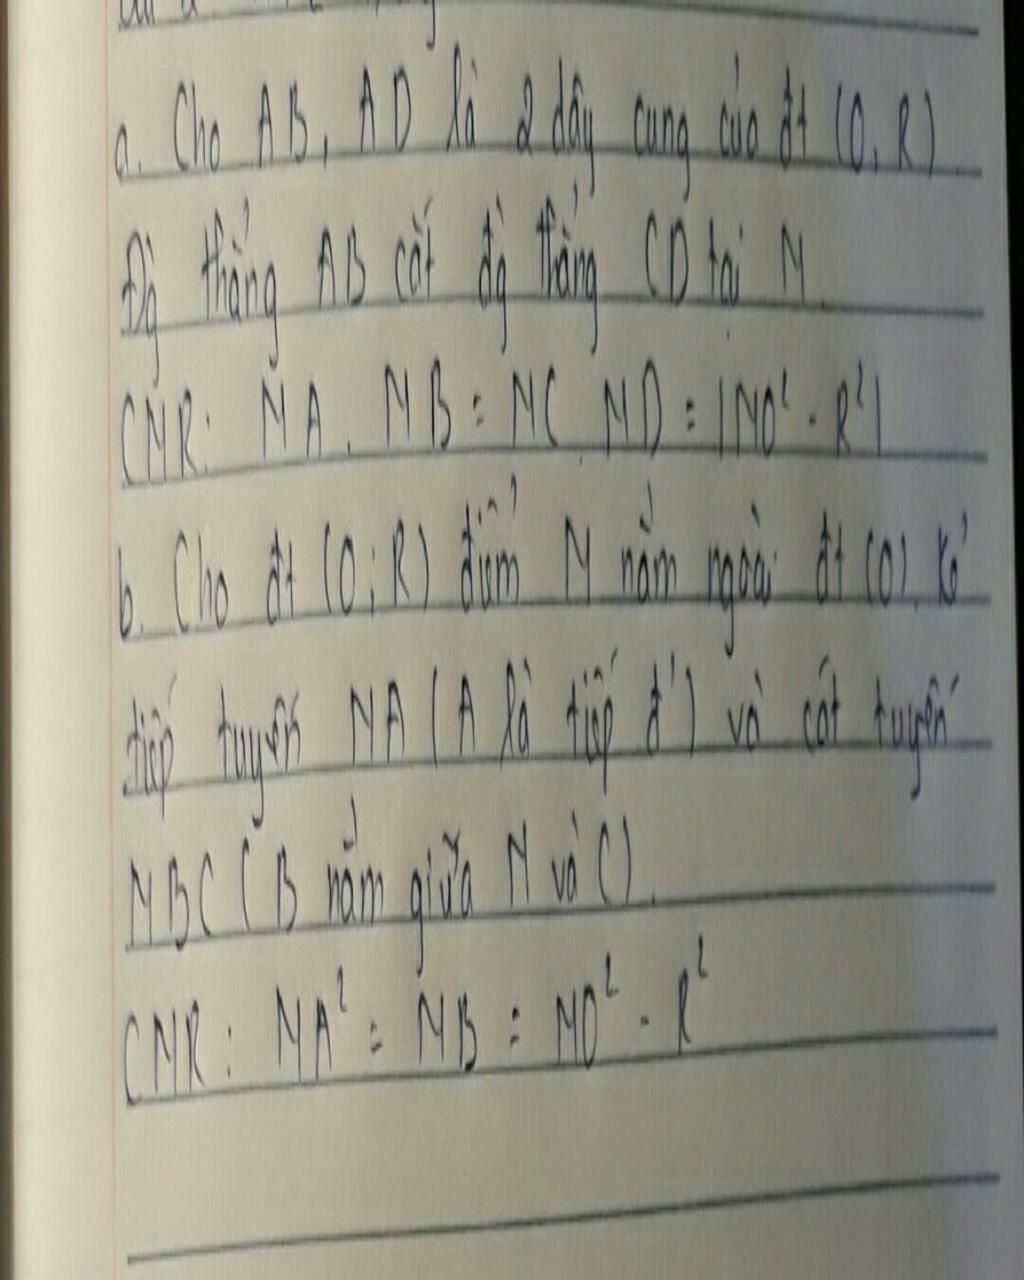 a. Cho AB, AD là 2 dây cung của đt (O, R)
Đg thẳng AB cắt đg thẳng CD tại M.
CMR: MA. MB = MC MD = |MO² - R²|
b. Cho đt (O; R) điểm M nằm ngoài đt (O). Kẻ
tiếp tuyến MA (A là tiếp đ') và cát tuyến
MBC (B nằm giữa M và C).
CMR: MA² = MB = MO² - R²